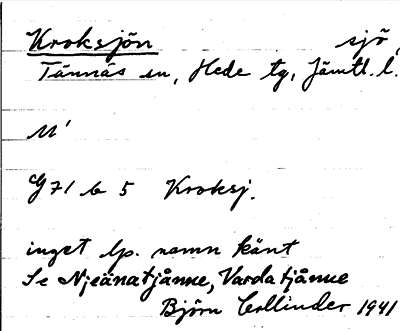 Kroksjön sjö,
Tännäs sn, Hede tg, Jämtl. l.
M'
G 71 b 5 Kroksj.
inget lp. namn känt
Se Njeänatjånne, Vardatjånne
Björn Collinder 1941